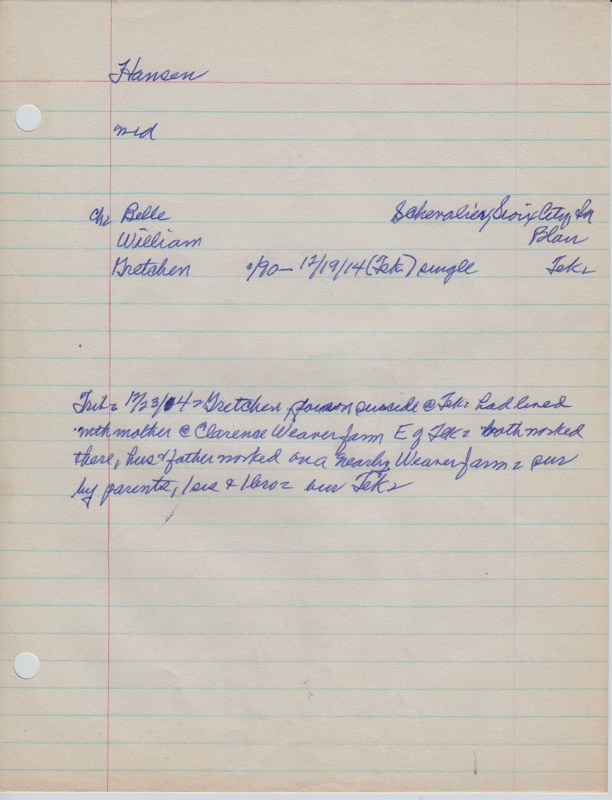 Hansen
md
ch= Belle Schevalier, Sioix City, Ia
William Blair
Gretchen /90— 12/19/14 (Tek.) single Tek=
Trib= 12/23/04= Gretchen, poison suicide @ Tek= had lived
with mother @ Clarence Weaver farm E of Tek= both worked
there, bus & father worked on a nearby Weaver farm= sur
by parents, 1 sis & 1 bro= bur Tek=